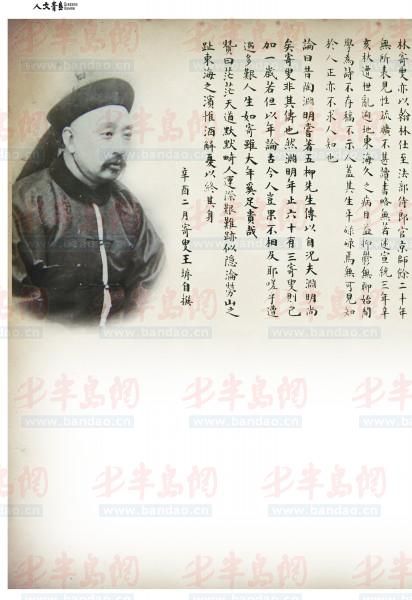 林寄叟亦以翰林仕至法部侍郎官京師餘二十年
無所表見性疏懶不甚讀書略無著述宣統三年辛
亥秋遭世亂避地東海久之病目益抑鬱無聊始間
學為詩不存稿不示人蓋其生平碌碌焉無可見知
於人正亦不求人知也
論曰昔陶淵明嘗著五柳先生傳以自況夫淵明尚
矣寄叟非其儔也然淵明年止六十有三寄叟則已
加一歲若但以年論古今人豈果不相及耶嗟乎遭
遇多艱人生如寄雖大年奚足貴哉
贊曰茫茫天道默默畸人運際艱難跡似隱淪勞山之
趾東海之濱惟酒解憂以終其身
辛酉二月寄叟王垿自撰
半岛网
www.bandao.cn